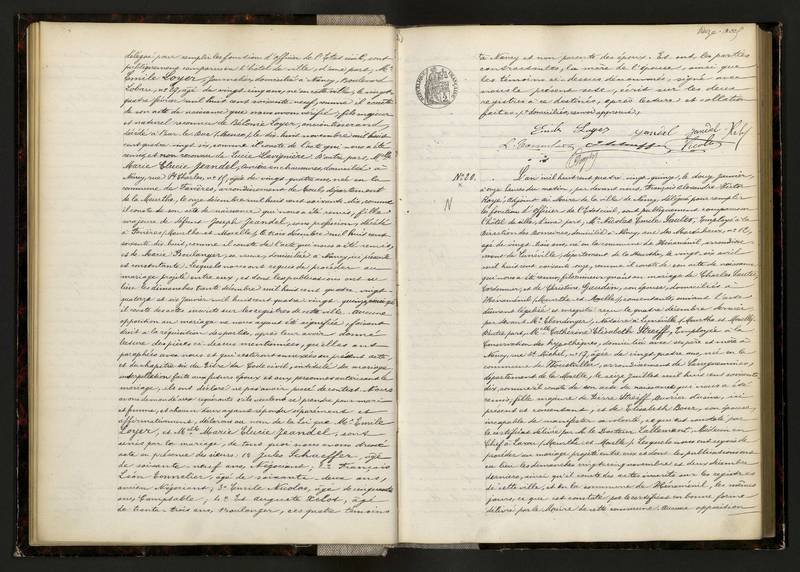 délégué pour remplir les fonctions d'officier de l'Etat civil, sont
publiquement comparus en l'hôtel de ville, d'une part, Mr
Emile Loyer, Journalier, domicilié à Nancy, Boulevard
Lobau, no 29, âgé de vingt cinq ans, né en cette ville, le vingt
quatre février mil huit cent soixante neuf, comme il conste
de son acte de naissance que nous avons vérifié, fils majeur
et naturel reconnu de Loyer,
décédé à Bar-le-Duc (Meuse), le dix huit novembre mil huit
cent quatre vingt six, comme il conste de l'acte qui nous a été
remis, et non reconnu de Lucie D'autre part, Mlle
Marie Elucie Jeandel, domiciliée à
Nancy, rue St Charles, no 15, âgée de vingt quatre ans, née en la
commune de arrondissement de Toul, département
de la Meurthe, le onze décembre mil huit cent soixante dix, comme
il conste de son acte de naissance qui nous a été remis, fille
majeure de Joseph Jeandel, sans profession, décédé
à (Meurthe et Moselle), le trois décembre mil huit cent
soixante dix huit, comme il conste de l'acte qui nous a été remis,
et de Marie Boulanger, sa veuve, domiciliée à Nancy, ici présente
et consentante, Lesquels nous ont requis de procéder au
mariage projeté entre eux, et dont les publications ont eu
lieu les dimanches trente décembre mil huit cent quatre vingt
quatorze et six janvier mil huit cent quatre vingt quinze, ainsi qu'
il conste des actes inscrits sur les registres de cette ville. Aucune
opposition au mariage ne nous ayant été signifiée, faisant
droit à la réquisition des parties, après leur avoir donné
lecture des pièces ci-dessus mentionnées, qu'elles ont
paraphées avec nous et qui resteront annexées au présent acte,
et du chapitre six du titre du Code civil, intitulé du mariage,
interpellation faite aux futurs époux et aux personnes autorisant le
mariage, ils ont déclaré ne pas avoir passé de contrat. Nous
avons demandé aux requérants s'ils veulent se prendre pour mari
et femme, et chacun d'eux ayant répondu séparément et
affirmativement, déclarons au nom de la Loi que Mr Emile
Loyer, et Mlle Marie Elucie Jeandel, sont
unis par le mariage, de tout quoi nous avons dressé
acte en présence des sieurs: 1o Jules Schaeffer, âgé
de soixante-neuf ans, Négociant, 2o François
Léon Tonnelier, âgé de soixante-deux ans,
ancien Négociant, 3o Emile Nicolas, âgé de cinquante
ans, Comptable, 4o Et Auguste Helot, âgé
de trente-trois ans, Boulanger, ces quatre témoins
à Nancy et non parents des époux. Et ont, les parties
contractantes, la mère de l'épouse, ainsi que
les témoins ci-dessus dénommés, signé avec
nous le présent acte, écrit sur les deux
registres à ce destinés, après lecture et collation
faites,
Emile Loyer Jandel Jandel
Nicolas
No 20.
N
L'an mil huit cent quatre vingt quinze, le douze janvier,
à onze heures du matin, par devant nous, François Alexandre Victor
Adjoint au Maire de la ville de Nancy, délégué pour remplir
les fonctions d'officier de l'Etat civil, sont publiquement comparus en
l'hôtel de ville, d'une part, Mr Nicolas Emile Gaultez, Employé à la
Direction des Domaines, domicilié à Nancy, rue des Maréchaux, no 12,
âgé de vingt trois ans, né en la commune de Hénaménil, arrondisse
ment de Lunéville, département de la Meurthe, le vingt six avril
mil huit cent soixante onze, comme il conste de son acte de naissance
qui nous a été remis, fils majeur et en mariage de Charles Gaultez,
Cordonnier, et de Christine Gaudin, son épouse, domiciliés à
Hénaménil (Meurthe et Moselle), consentants, suivant l'acte
dûment légalisé et enregistré reçu le quatre décembre dernier
par devant Me Notaire à Lunéville (Meurthe et Moselle).
D'autre part, Mlle Catherine Elisabeth Streiff, Employée à la
Conservation des hypothèques, domiciliée avec ses père et mère à
Nancy, rue St Michel, no 17, âgée de vingt quatre ans, née en la
commune de arrondissement de Sarreguemines,
département de la Moselle, le seize juillet mil huit cent soixante
dix, comme il conste de son acte de naissance qui nous a été
remis, fille majeure de Pierre Streiff, ici
présent et consentant, et de Elisabeth Bour, son épouse,
incapable de manifester sa volonté, ce qui est constaté par
le certificat délivré par Mr le Docteur Lallemant, Médecin en
Chef à (Meurthe et Moselle). Lesquels nous ont requis de
procéder au mariage projeté entre eux, et dont les publications ont
eu lieu les dimanches vingt cinq novembre et deux décembre
derniers, ainsi qu'il conste des actes inscrits sur les registres
de cette ville, et en la commune de Hénaménil, les mêmes
jours, ce qui est constaté par le certificat en bonne forme
délivré par le Maire de cette commune. Aucune opposition